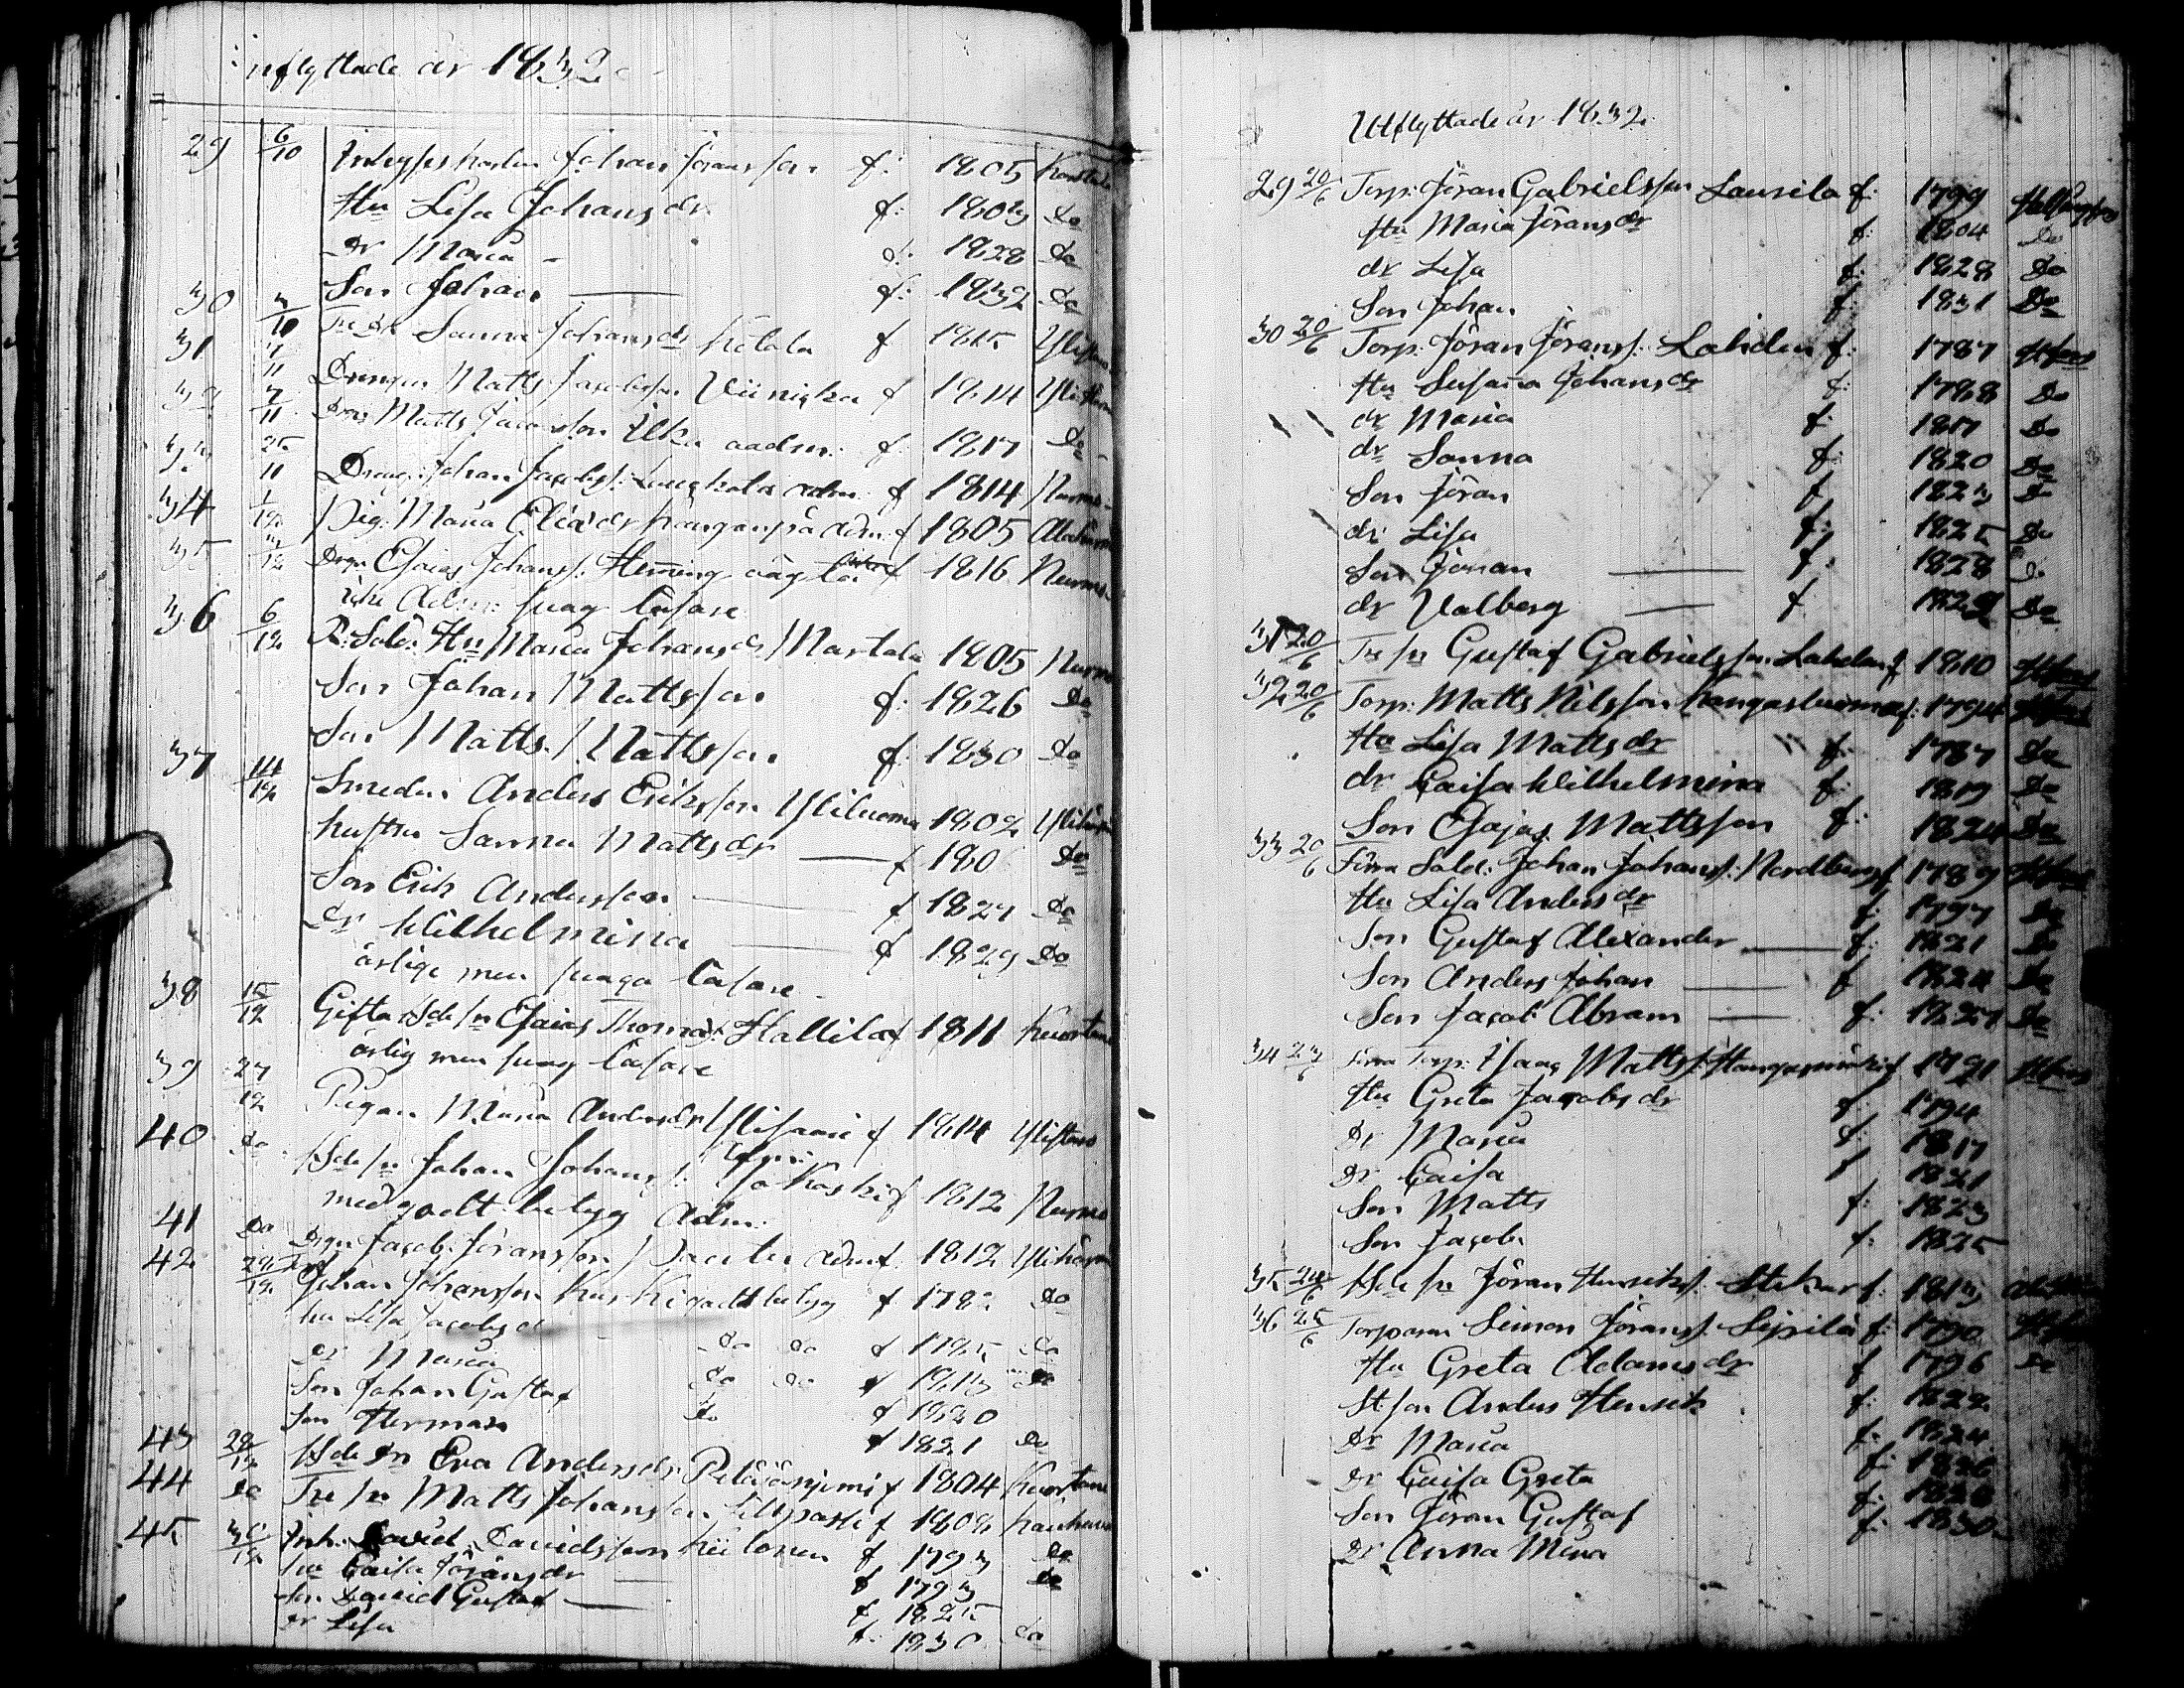 inflyttade år 1832
29 6/10 Inhyseskarlen Johan Jöransson f: 1805
Hu Lisa Johansdr f: 1803 do
Dr Maria f: 1828 do
Son Johan f: 1832 do
30 10 Sanna Johansdr Ketola f 1815
31 7/11 Drengen Matts Jacobsson Viinicka f 1814
32 7/11 Dräng Matts Jacobsson Ilka aadm. f. 1817 do
33 25/11 Dreng: Johan Jacobss: Luukala adm. f 1814 Nurmo
34 1/12 Pig: Maria Eliædr Kangaspä adm. f 1805
35 3/12 Drgn Esaias Johanss: Heming f 1816 Nurmo
icke Adm: svag läsare
36 6/12 R: Sold: Hu Maria Johansdr Martala 1805 Nurmo
Son Johan Mattsson f: 1826 do
Son Matts Mattsson f: 1830 do
37 14/12 Smeden Anders Eriksson Yliluoma 1802
hustru Sanna Mattsdr f 180 do
Son Erik Andersson f 1827 do
Dr Wilhelmina f 1829 do
ärlige men svaga läsare
38 15/12 Gifta Bdesn Esaias Thomæs: Hallila f 1811 Kuortane
ärlig men svag läsare
39 27/12 Pigan Maria Andersdr Ylisaari f 1814 Ylistaro
40 do Bdesn Johan Johanss: Kaski f 1812 Nurmo
med godt betyg Adm.
41 do Drgn Jacob Jöransson adm f. 1812 Ylihärmä
42 28/12 Johan Johansson Kuski godt betyg f 178 do
hu Lisa Jacobsd do do f 1785 do
dr Maria do do f 1813 do
Son Johan Gustaf do f 1820
Son Herman f 1821 do
43 28/12 Bdedr Eva Andersdr Petäjäniemi f 1804 Kuortane
44 do Matts Johansson f 1808 Kauhava
45 30/12 Inh: David Davidsson f 1793 do
hu Caisa Jöransdr f 1793 do
Son David Gustaf f 1825
dr Lisa f: 1830 do
Utflyttade år 1832
29 20/6 Torp: Jöran Gabrielsson Laurila f: 1799 Helsingfors
Hu Maria Jöransdr f: 1804 do
dr Lisa f: 1828 do
Son Johan f: 1831 do
30 20/6 Torp: Jöran Jöranss: Lahden f: 1787 Hfors
Hu Susanna Johansdr f: 1788 do
dr Maria f: 1817 do
dr Sanna f: 1820 do
Son Jöran f 1823 do
dr Lisa f: 1825 do
Son Johan f: 1828 do
dr Valberg f 1829 do
31 20/6 Gustaf Gabrielsson Lahden f 1810 Hfors
32 20/6 Torp: Matts Nilsson Kangasluoma f: 1794 Hfors
Hu Lisa Mattsdr f: 1787 do
dr Caisa Wilhelmina f: 1819 do
Son Esajas Mattsson f: 1824 do
33 20/6 Förra Sold: Johan Johanss: Nordberg f 1789 Hfors
Hu Lisa Andersdr f: 1797 do
Son Gustaf Alexander f: 1821 do
Son Anders Johan f 1824 do
Son Jacob Abram f: 1827 do
34 23/6 Förra Torp: Isaac Matts: f 1791 Hfors
Hu Greta Jacobsdr f: 1794
Dr Maria f: 1817
Dr Caisa f 1821
Son Matts f: 1823
Son Jacob f: 1825
35 24/6 Bdesn Jöran Henrikss: f: 1813
36 25/6 Torparen Simon Jöranss: Sippilä f: 1790 Hfors
Hu Greta Adamsdr f 1796 do
St:son Anders Henrik f: 1822
Dr Maria f. 1824
Dr Caisa Greta f: 1826
Son Jöran Gustaf f: 1828
Dr Anna Mina f: 1830